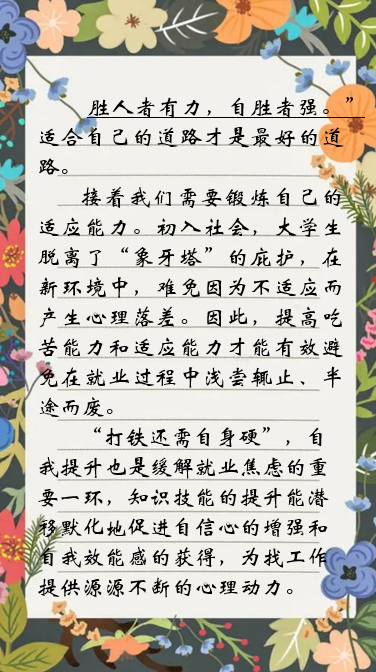 胜人者有力，自胜者强。”
适合自己的道路才是最好的道
路。
接着我们需要锻炼自己的
适应能力。初入社会，大学生
脱离了“象牙塔”的庇护，在
新环境中，难免因为不适应而
产生心理落差。因此，提高吃
苦能力和适应能力才能有效避
免在就业过程中浅尝辄止、半
途而废。
“打铁还需自身硬”，自
我提升也是缓解就业焦虑的重
要一环，知识技能的提升能潜
移默化地促进自信心的增强和
自我效能感的获得，为找工作
提供源源不断的心理动力。